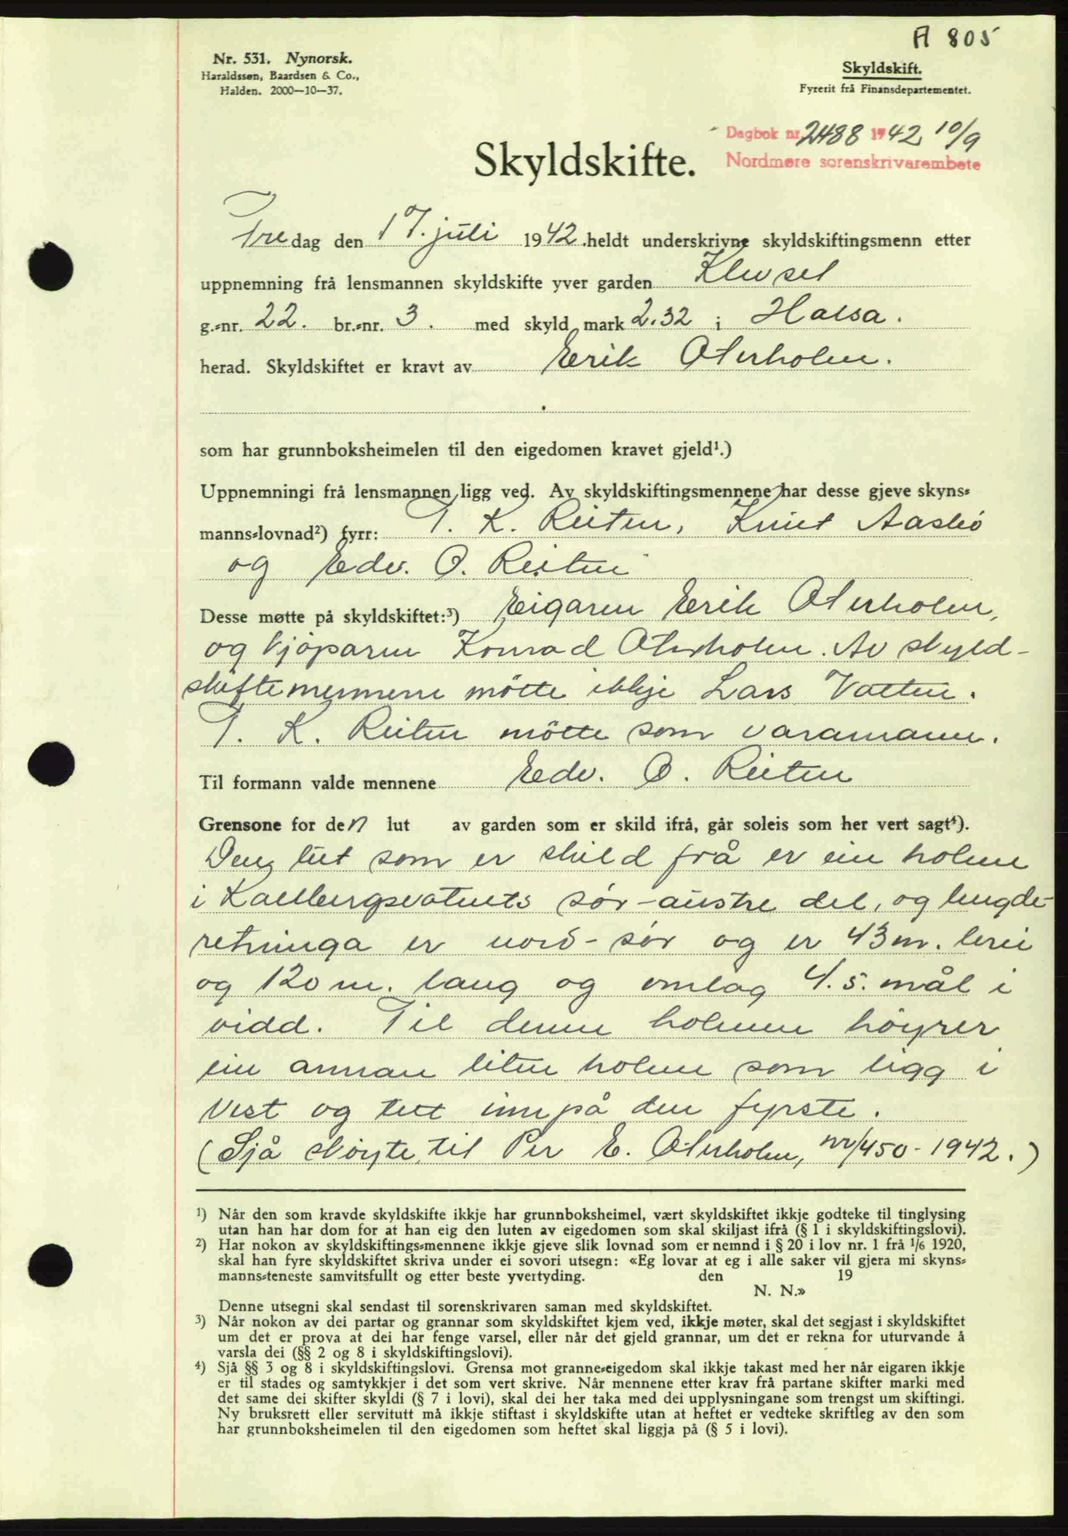 A 805
Nr. 531. Nynorsk.
Haraldssen, Baardsen & Co.,
Halden. 2000—10—37.
Skyldskift.
Fyrerit frå Finansdepartementet.
Dagbok nr. 2488 1942 10/9
Nordmøre sorenskrivarembete
Skyldskifte.
Fredag den 17. juli 1942. heldt underskrivne skyldskiftingsmenn etter
uppnemning frå lensmannen skyldskifte yver garden Klevset
g.-nr. 22. br.-nr. 3. med skyld mark 2.32 i Halsa.
herad. Skyldskiftet er kravt av Erik Oterholm.
som har grunnboksheimelen til den eigedomen kravet gjeld¹.)
Uppnemningi frå lensmannen ligg ved. Av skyldskiftingsmennene har desse gjeve skyns-
manns-lovnad²) fyrr: T. K. Reiten, Knut Aasbö
og Edv. O. Reiten
Desse møtte på skyldskiftet:³) Eigaren Erik Oterholm,
og kjöparen Konrad Oterholm. Av skyld-
skiftemennene mötte ikkje Lars Vatten.
T. K. Reiten mötte som varamann.
Til formann valde mennene Edv. O. Reiten
Grensone for den lut av garden som er skild ifrå, går soleis som her vert sagt⁴).
Den lut som er skild frå er ein holme
i Kallbergsvatnets sør-austre del, og lengde-
retninga er nord-sør og er 43 m. brei
og 120 m. lang og omlag 4.5. mål i
vidd. Til denne holmen höyrer
ein annan liten holme som ligg i
vest og tett innpå den fyrste.
(Sjå sköyte til Per E. Oterholm, nr/450-1942.)
¹) Når den som kravde skyldskifte ikkje har grunnboksheimel, vært skyldskiftet ikkje godteke til tinglysing
utan han har dom for at han eig den luten av eigedomen som skal skiljast ifrå (§ 1 i skyldskiftingslovi).
²) Har nokon av skyldskiftings-mennene ikkje gjeve slik lovnad som er nemnd i § 20 i lov nr. 1 frå 1/6 1920,
skal han fyre skyldskiftet skriva under ei sovori utsegn: «Eg lovar at eg i alle saker vil gjera mi skyns-
manns-teneste samvitsfullt og etter beste yvertyding. den 19
N. N.»
Denne utsegni skal sendast til sorenskrivaren saman med skyldskiftet.
³) Når nokon av dei partar og grannar som skyldskiftet kjem ved, ikkje møter, skal det segjast i skyldskiftet
um det er prova at dei har fenge varsel, eller når det gjeld grannar, um det er rekna for uturvande å
varsla dei (§§ 2 og 8 i skyldskiftingslovi).
⁴) Sjå §§ 3 og 8 i skyldskiftingslovi. Grensa mot granne-eigedom skal ikkje takast med her når eigaren ikkje
er til stades og samtykkjer i det som vert skrive. Når mennene etter krav frå partane skifter marki med
det same dei skifter skyldi (§ 7 i lovi), skal dei her taka med dei upplysningane som trengst um skiftingi.
Ny bruksrett eller servitutt må ikkje stiftast i skyldskifte utan at heftet er vedteke skriftleg av den som
har grunnboksheimelen til den eigedomen som heftet skal liggja på (§ 5 i lovi).